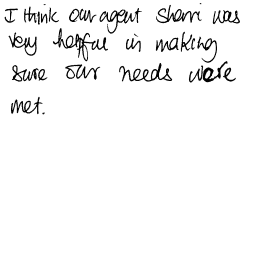 I think our agent Sherri was
very helpful in making
sure our needs were
met.